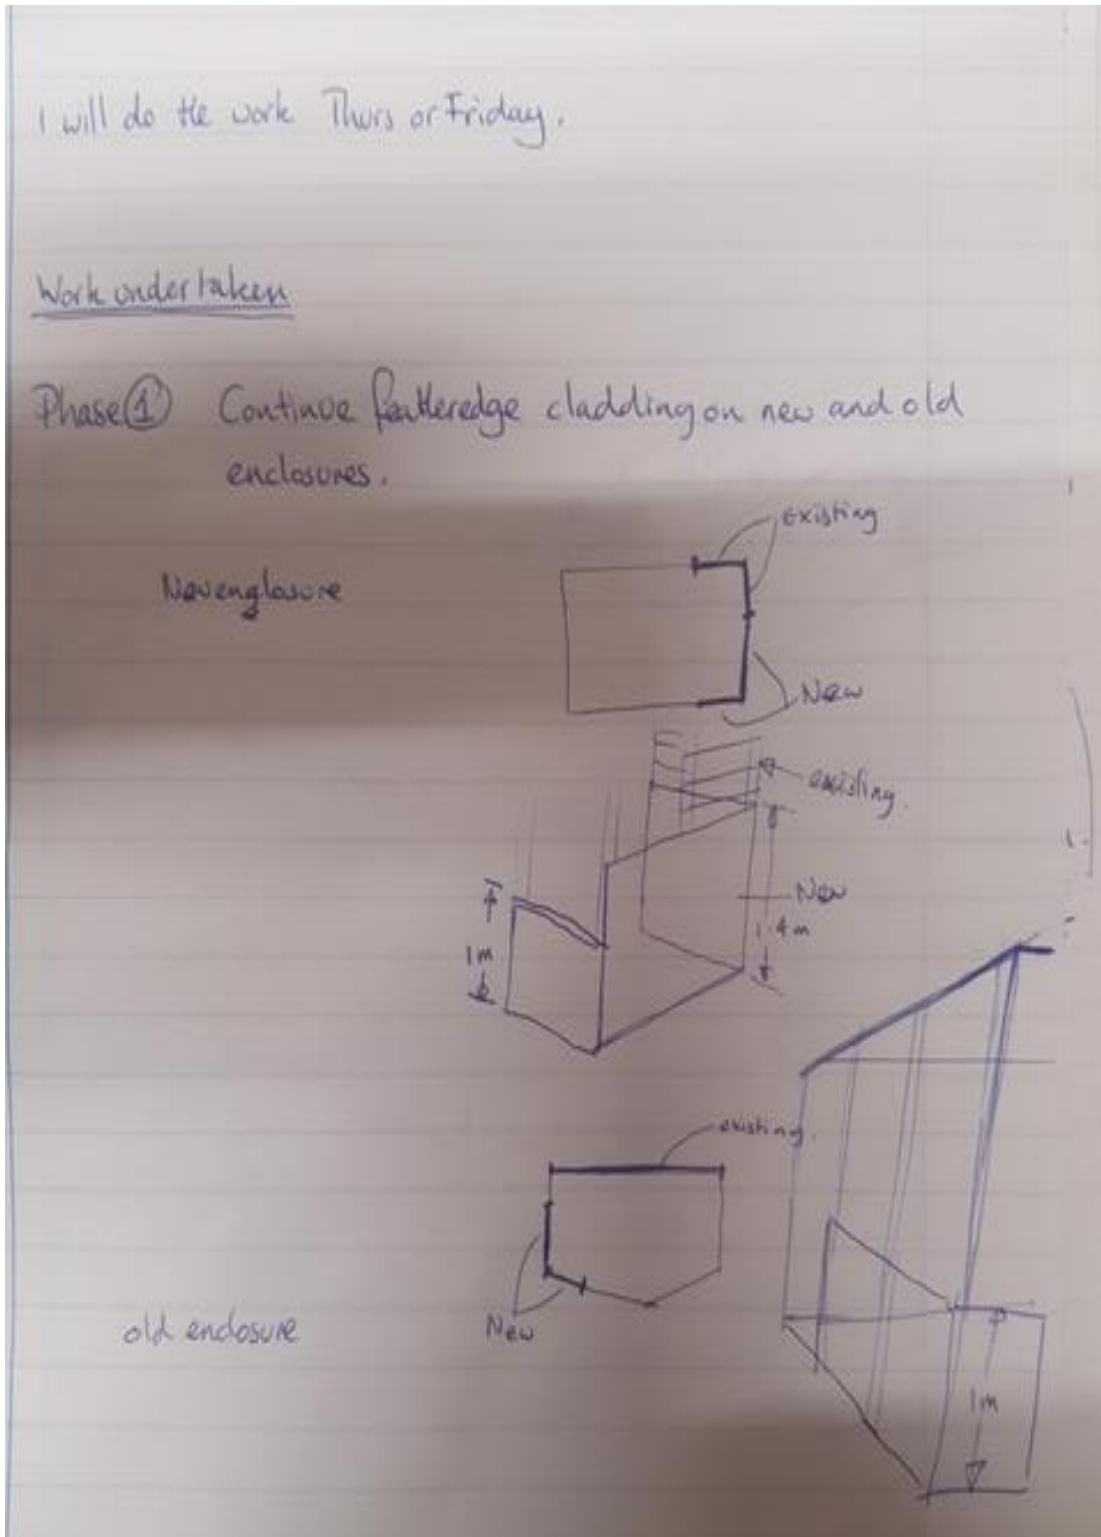 I will do the work Thurs or Friday.
Work undertaken
Phase ① Continue featheredge cladding on new and old
enclosures.
existing
New englosure
New
existing.
New
1.4m
1m
existing.
New
old enclosure
1m